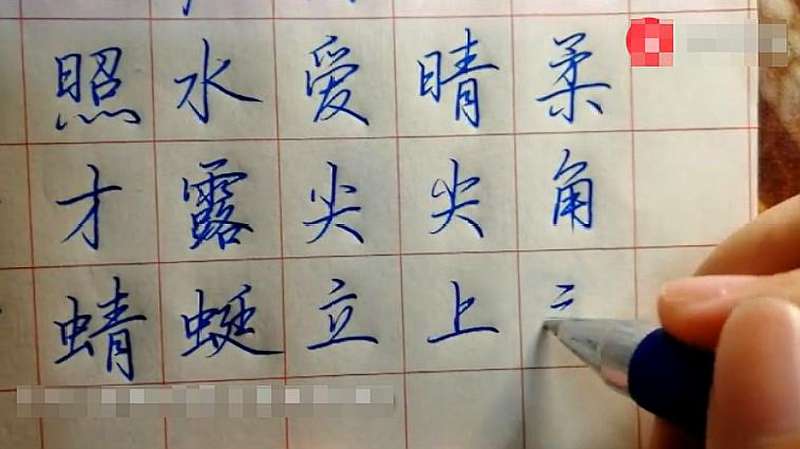 照水爱晴柔
才露尖尖角
蜻蜓立上